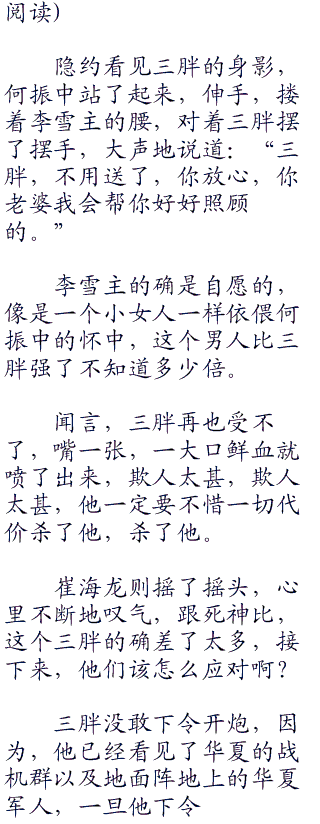 阅读)
隐约看见三胖的身影，
何振中站了起来，伸手，搂
着李雪主的腰，对着三胖摆
了摆手，大声地说道：“三
胖，不用送了，你放心，你
老婆我会帮你好好照顾
的。”
李雪主的确是自愿的，
像是一个小女人一样依偎何
振中的怀中，这个男人比三
胖强了不知道多少倍。
闻言，三胖再也受不
了，嘴一张，一大口鲜血就
喷了出来，欺人太甚，欺人
太甚，他一定要不惜一切代
价杀了他，杀了他。
崔海龙则摇了摇头，心
里不断地叹气，跟死神比，
这个三胖的确差了太多，接
下来，他们该怎么应对啊？
三胖没敢下令开炮，因
为，他已经看见了华夏的战
机群以及地面阵地上的华夏
军人，一旦他下令